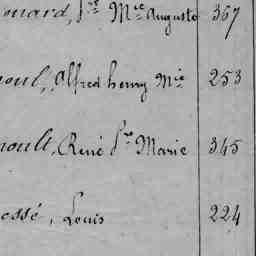 onard, f.se Mie Auguste 367
noul, Alfred henry Mie 253
noult, René f.se Marie 345
ossé, Louis 224